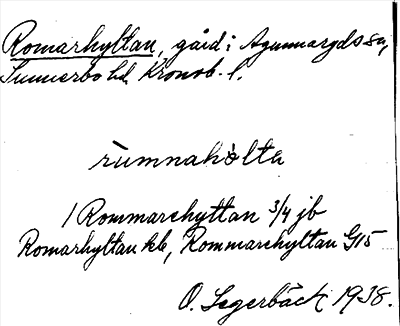 Romarhyttan, gård i Agunnaryds sn,
Sunnerbo hd. Kronob. l.
rùmnahòlta
1 Rommarehyttan 3/4 jb
Romarhyttan kb, Rommarehyttan G15
O. Segerbäck 1938.